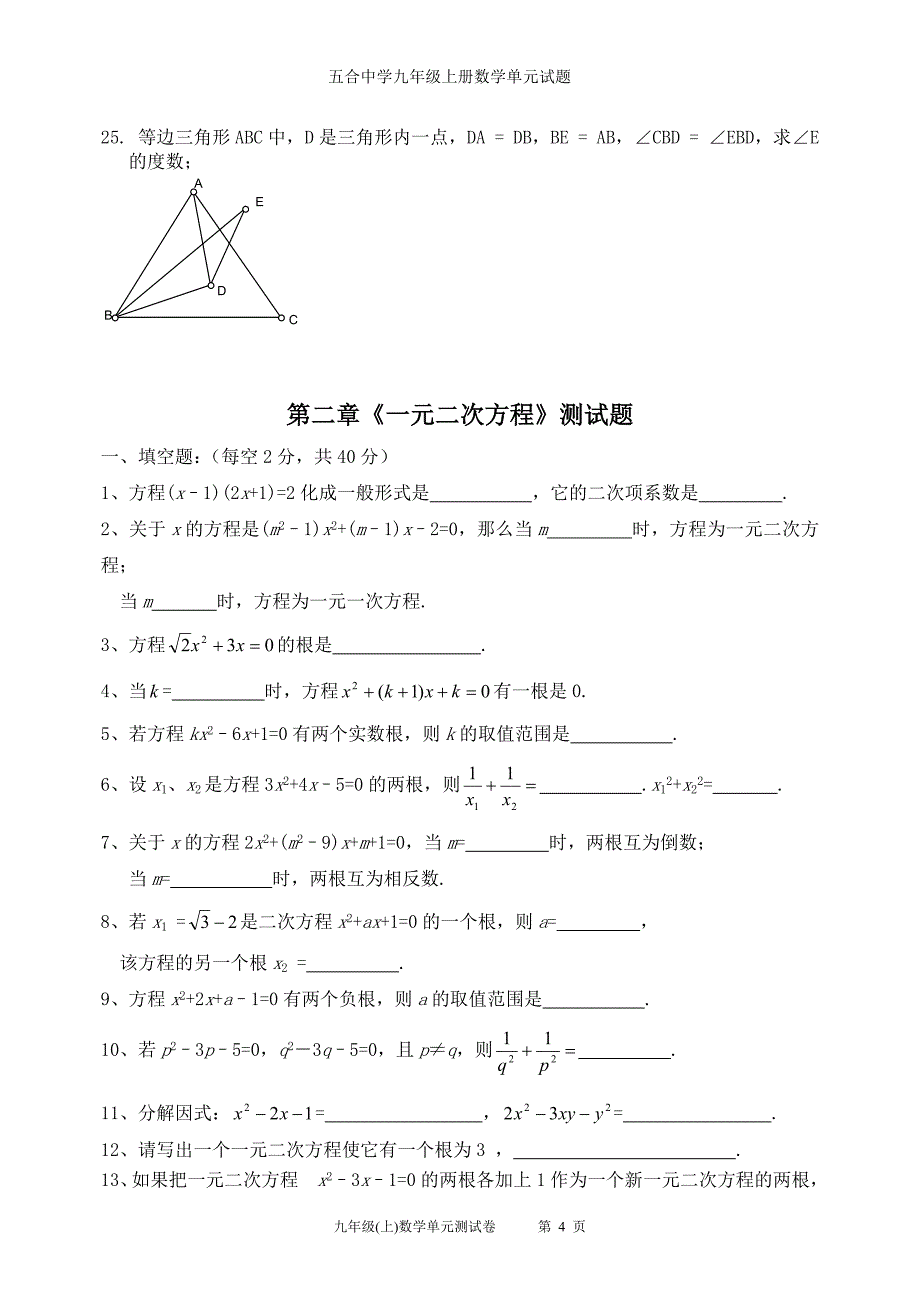 五合中学九年级上册数学单元试题
25. 等边三角形ABC中，D是三角形内一点，DA = DB，BE = AB，∠CBD = ∠EBD，求∠E
的度数；
A
E
D
B
C
第二章《一元二次方程》测试题
一、填空题：（每空2分，共40分）
1、方程(x–1)(2x+1)=2化成一般形式是__________，它的二次项系数是________.
2、关于x的方程是(m²–1)x²+(m–1)x–2=0，那么当m________时，方程为一元二次方
程；
当m______时，方程为一元一次方程.
3、方程√2x²+3x=0的根是______________.
4、当k=_________时，方程x²+(k+1)x+k=0有一根是0.
5、若方程kx²–6x+1=0有两个实数根，则k的取值范围是__________.
6、设x₁、x₂是方程3x²+4x–5=0的两根，则1/x₁+1/x₂=__________.x₁²+x₂²=______.
7、关于x的方程2x²+(m²–9)x+m+1=0，当m=________时，两根互为倒数；
当m=__________时，两根互为相反数.
8、若x₁ =√3–2是二次方程x²+ax+1=0的一个根，则a=________，
该方程的另一个根x₂ =_________.
9、方程x²+2x+a–1=0有两个负根，则a的取值范围是__________.
10、若p²–3p–5=0，q²－3q–5=0，且p≠q，则1/q²+1/p²=_________.
11、分解因式：x²–2x–1=_______________，2x²–3xy–y²=______________.
12、请写出一个一元二次方程使它有一个根为3 ，______________________.
13、如果把一元二次方程 x²–3x–1=0的两根各加上1作为一个新一元二次方程的两根，
九年级(上)数学单元测试卷 第 4 页